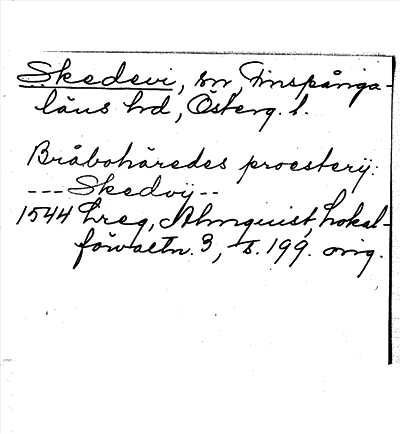 Skedevi, sn, Finspånga-
läns hd, Österg. l.
Bråbohäredes proesterij:
--- Skedvij --
1544 Lreg, Almquist, Lokal-
förvaltn. 3, s. 199. orig.